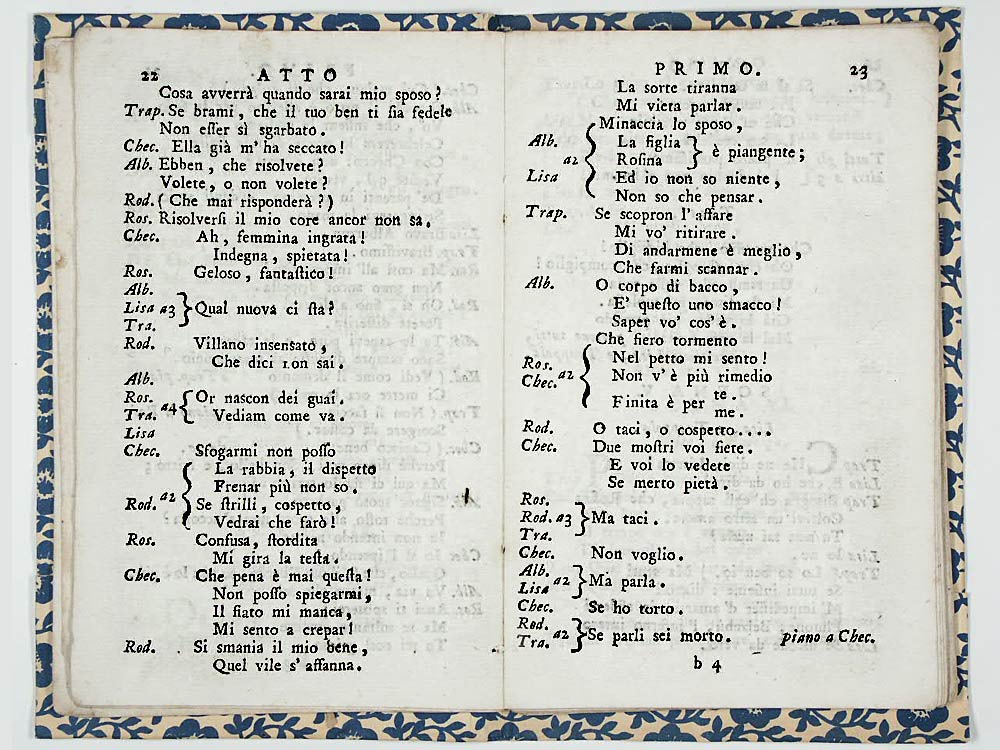 22 ATTO
Cosa avverrà quando sarai mio sposo?
Trap. Se brami, che il tuo ben ti sia fedele
Non esser sì sgarbato.
Chec. Ella già m' ha seccato!
Alb. Ebben, che risolvete?
Volete, o non volete?
Rod. (Che mai risponderà?)
Ros. Risolversi il mio core ancor non sa.
Chec. Ah, femmina ingrata!
Indegna, spietata!
Ros. Geloso, fantastico!
Alb.
Lisa a3 Qual nuova ci sta?
Tra.
Rod. Villano insensato,
Che dici non sai.
Alb.
Ros. Or nascon dei guai.
Tra. a4 Vediam come va.
Lisa
Chec. Sfogarmi non posso
La rabbia, il dispetto
a2 Frenar più non so.
Rod. Se strilli, cospetto,
Vedrai che farò!
Ros. Confusa, stordita
Mi gira la testa.
Chec. Che pena è mai questa!
Non posso spiegarmi,
Il fiato mi manca,
Mi sento a crepar!
Rod. Si smania il mio bene,
Quel vile s' affanna.
PRIMO. 23
La sorte tiranna
Mi vieta parlar.
Minaccia lo sposo,
Alb. La figlia
a2 Rosina è piangente;
Lisa Ed io non so niente,
Non so che pensar.
Trap. Se scopron l' affare
Mi vo' ritirare.
Di andarmene è meglio,
Che farmi scannar.
Alb. O corpo di bacco,
E' questo uno smacco!
Saper vo' cos' è.
Che fiero tormento
Ros. Nel petto mi sento!
Chec. a2 Non v' è più rimedio
Finita è per te.
me.
Rod. O taci, o cospetto....
Chec. Due mostri voi siete.
E voi lo vedete
Se merto pietà.
Ros.
Rod. a3 Ma taci.
Tra.
Chec. Non voglio.
Alb.
Lisa a2 Ma parla.
Chec. Se ho torto.
Rod.
Tra. a2 Se parli sei morto. piano a Chec.
b 4